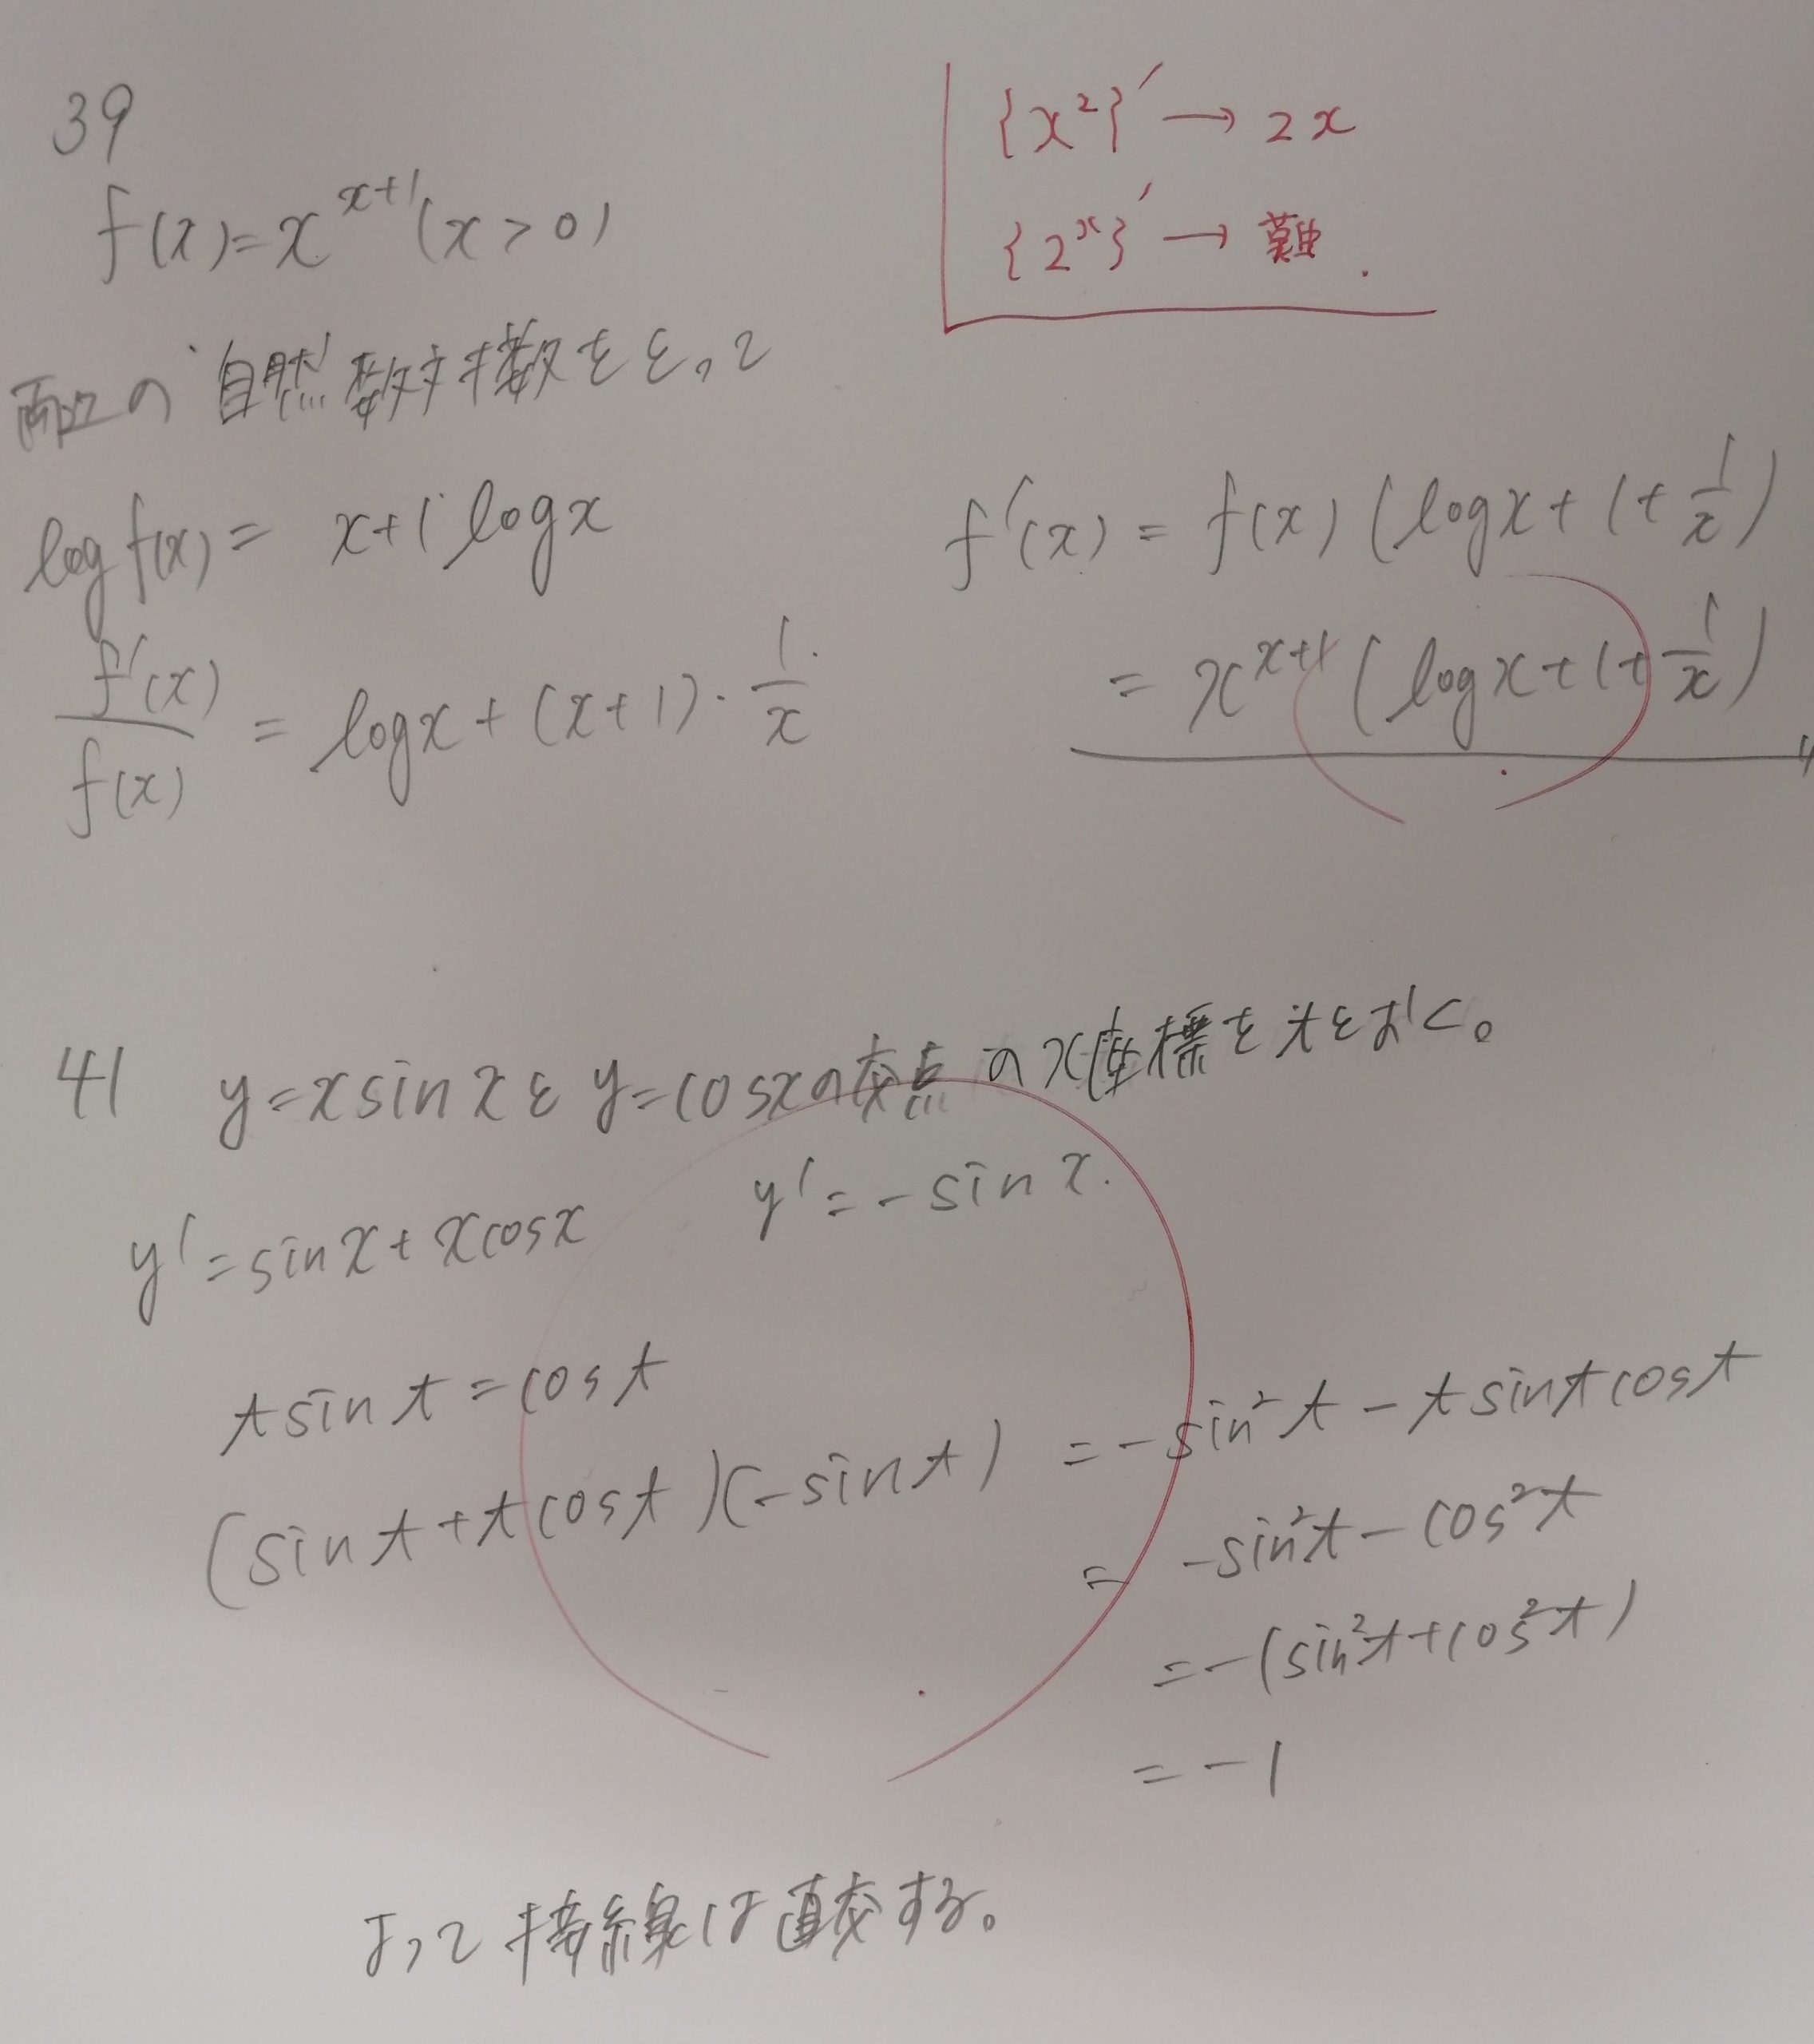 39
f(x)=x^{x+1}(x>0)
{x²}′→2x
{2^x}′→難.
両辺の自然数対数をとって
log f(x)= x+1 log x
f′(x)/f(x) = log x+(x+1)・1/x
f′(x)=f(x)(log x+1+1/x)
=x^{x+1}(log x+1+1/x)
41 y=x sin xとy=cos xの交点のx座標をtとおく。
y′=sin x+x cos x y′=-sin x.
t sin t=cos t
(sin t+t cos t)(-sin t) =-sin²t-t sin t cos t
= -sin²t-cos²t
=-(sin²t+cos²t)
=-1
よって接線は直交する。